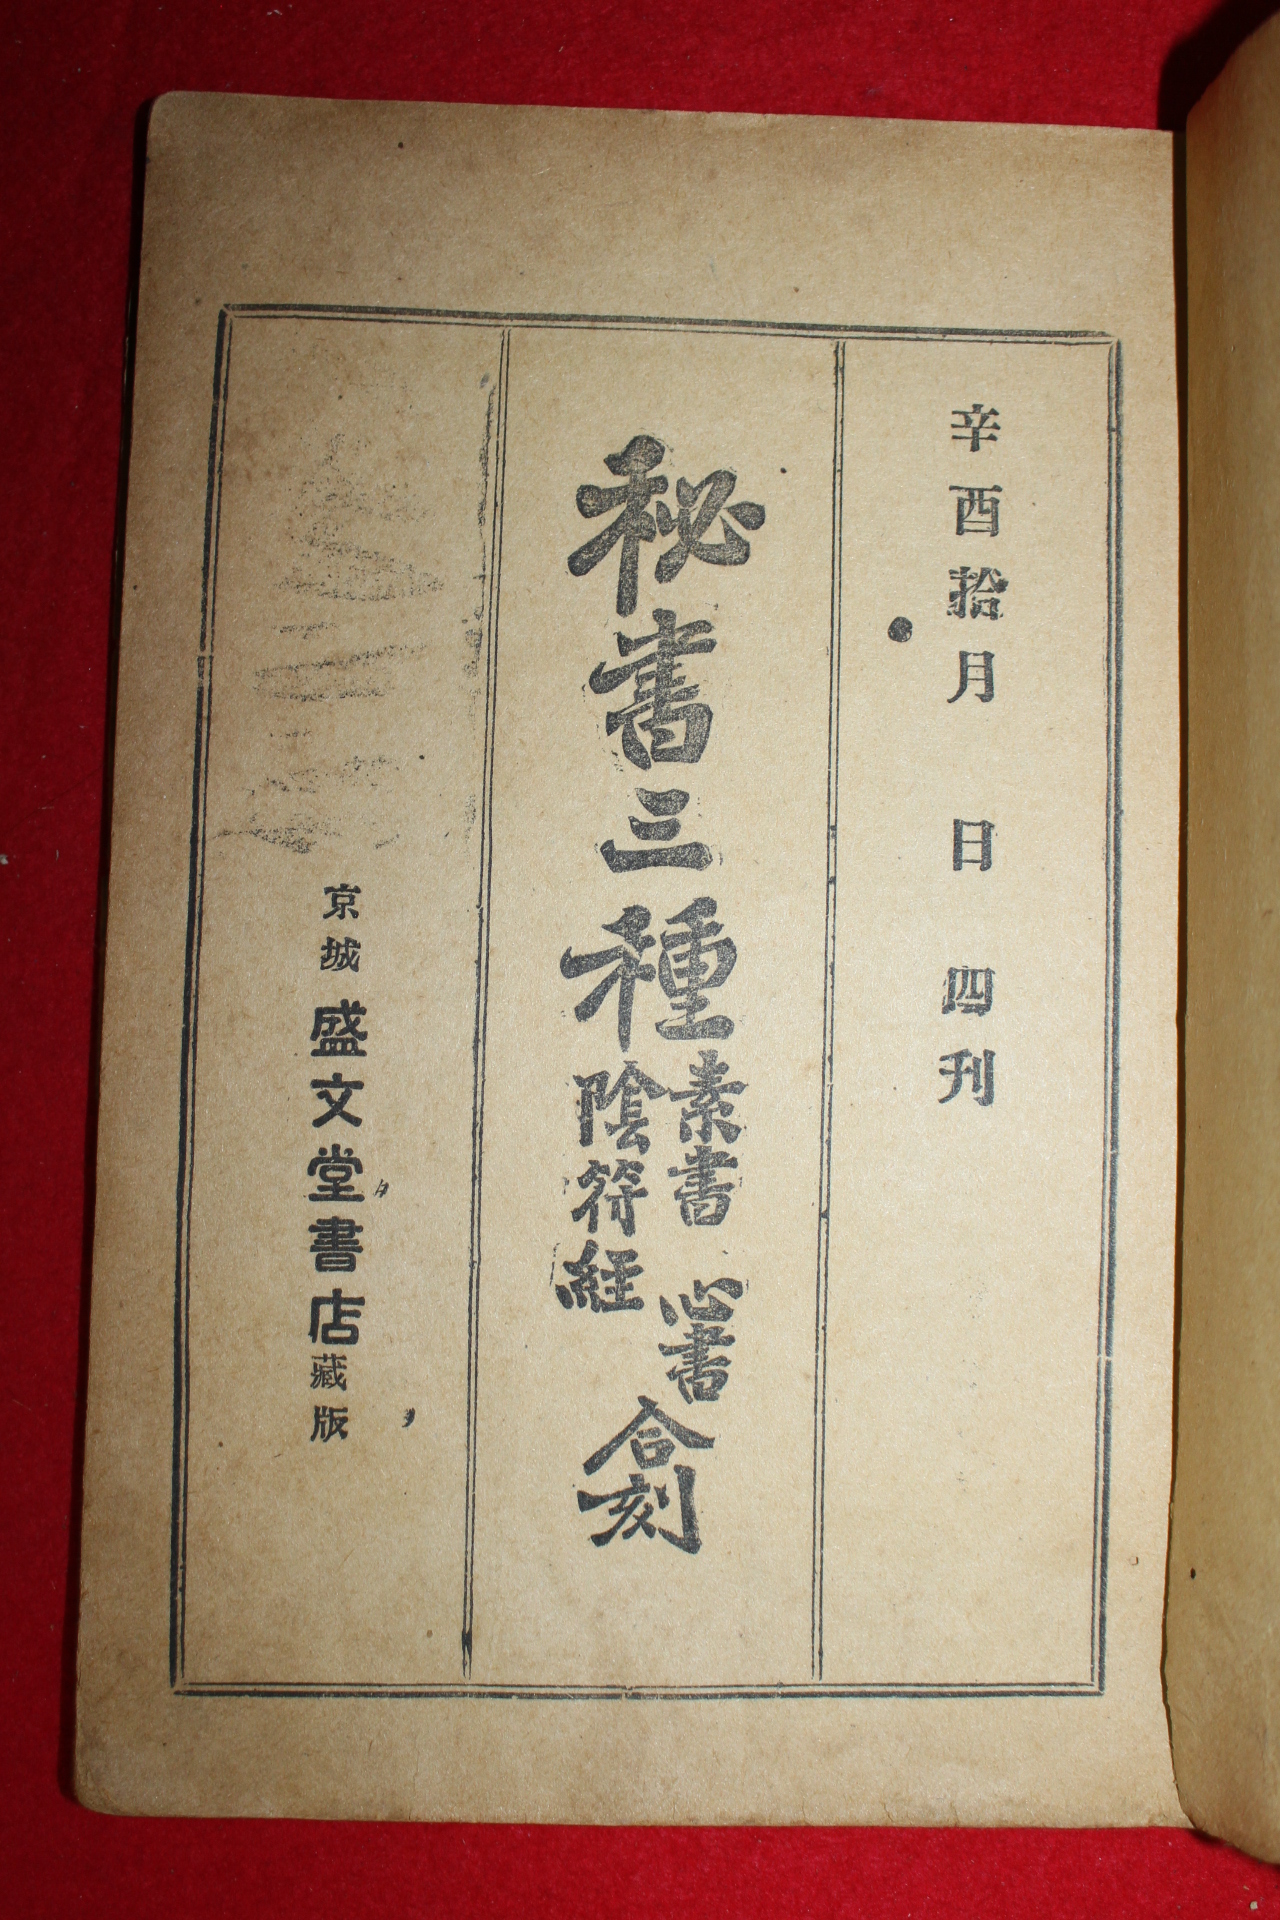 辛酉拾月 日 四刊
秘書三種
素書 心書
陰符經
合刻
京城 盛文堂書店 藏版